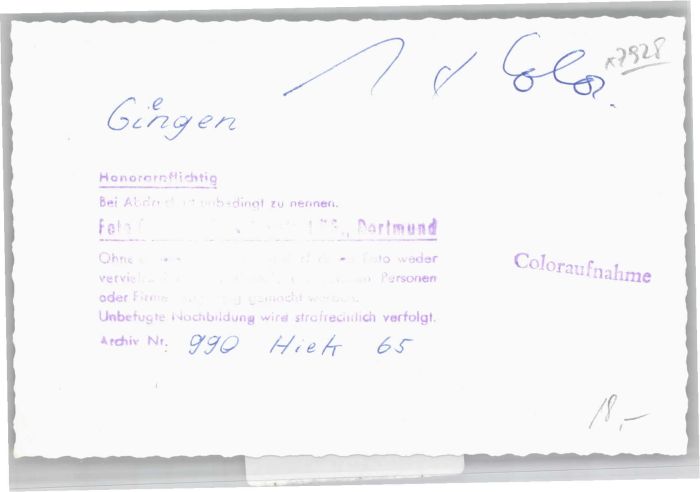 1 d Color.
x7928
Giengen
Honorarpflichtig
Bei Abdruck ist unbedingt zu nennen.
Foto Dortmund
Ohne Foto weder
Personen
oder gemacht werden.
Unbefugte Nachbildung wird strafrechtlich verfolgt.
Coloraufnahme
Archiv Nr. 990 Hiek 65
18,-